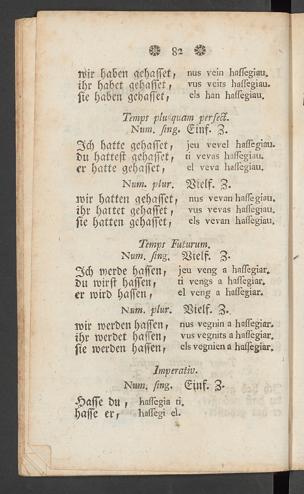 82
wir haben gehasset, nus vein hassegiau.
ihr habet gehasset, vus veits hassegiau.
sie haben gehasset, els han hassegiau.
Temps plusquam perfect.
Num. sing. Einf. Z.
Ich hatte gehasset, jeu vevel hassegiau.
du hattest gehasset, ti vevas hassegiau.
er hatte gehasset, el veva hassegiau.
Num. plur. Vielf. Z.
wir hatten gehasset, nus vevan hassegiau.
ihr hattet gehasset, vus vevas hassegiau.
sie hatten gehasset, els vevan hassegiau.
Temps Futurum.
Num. sing. Vielf. Z.
Ich werde hassen, jeu veng a hassegiar.
du wirst hassen, ti vengs a hassegiar.
er wird hassen, el veng a hassegiar.
Num. plur. Vielf. Z.
wir werden hassen, nus vegnin a hassegiar.
ihr werdet hassen, vus vegnits a hassegiar.
sie werden hassen, els vegnien a hassegiar.
Imperativ.
Num. sing. Einf. Z.
Hasse du, hassegia ti.
hasse er, hassegi el.